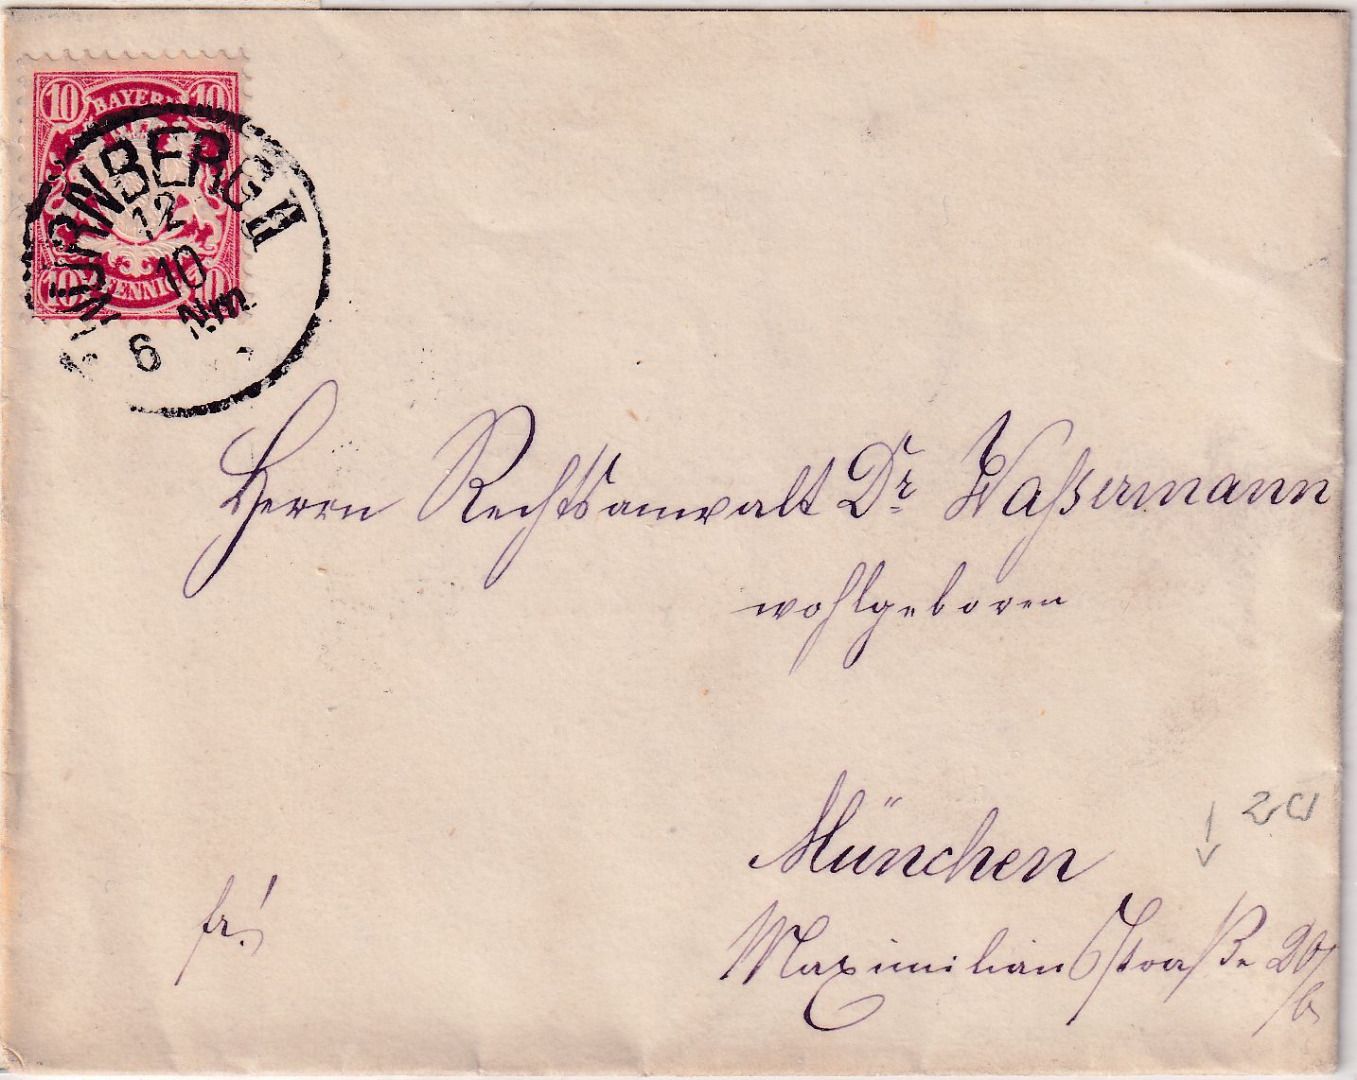 10 BAYERN 10
NÜRNBERG II
12
10
6 Nm
10 PFENNIG 10
Herrn Rechtsanwalt Dr. Waßermann
wohlgeboren
München
Maximiliansstraße 20/b
fr!